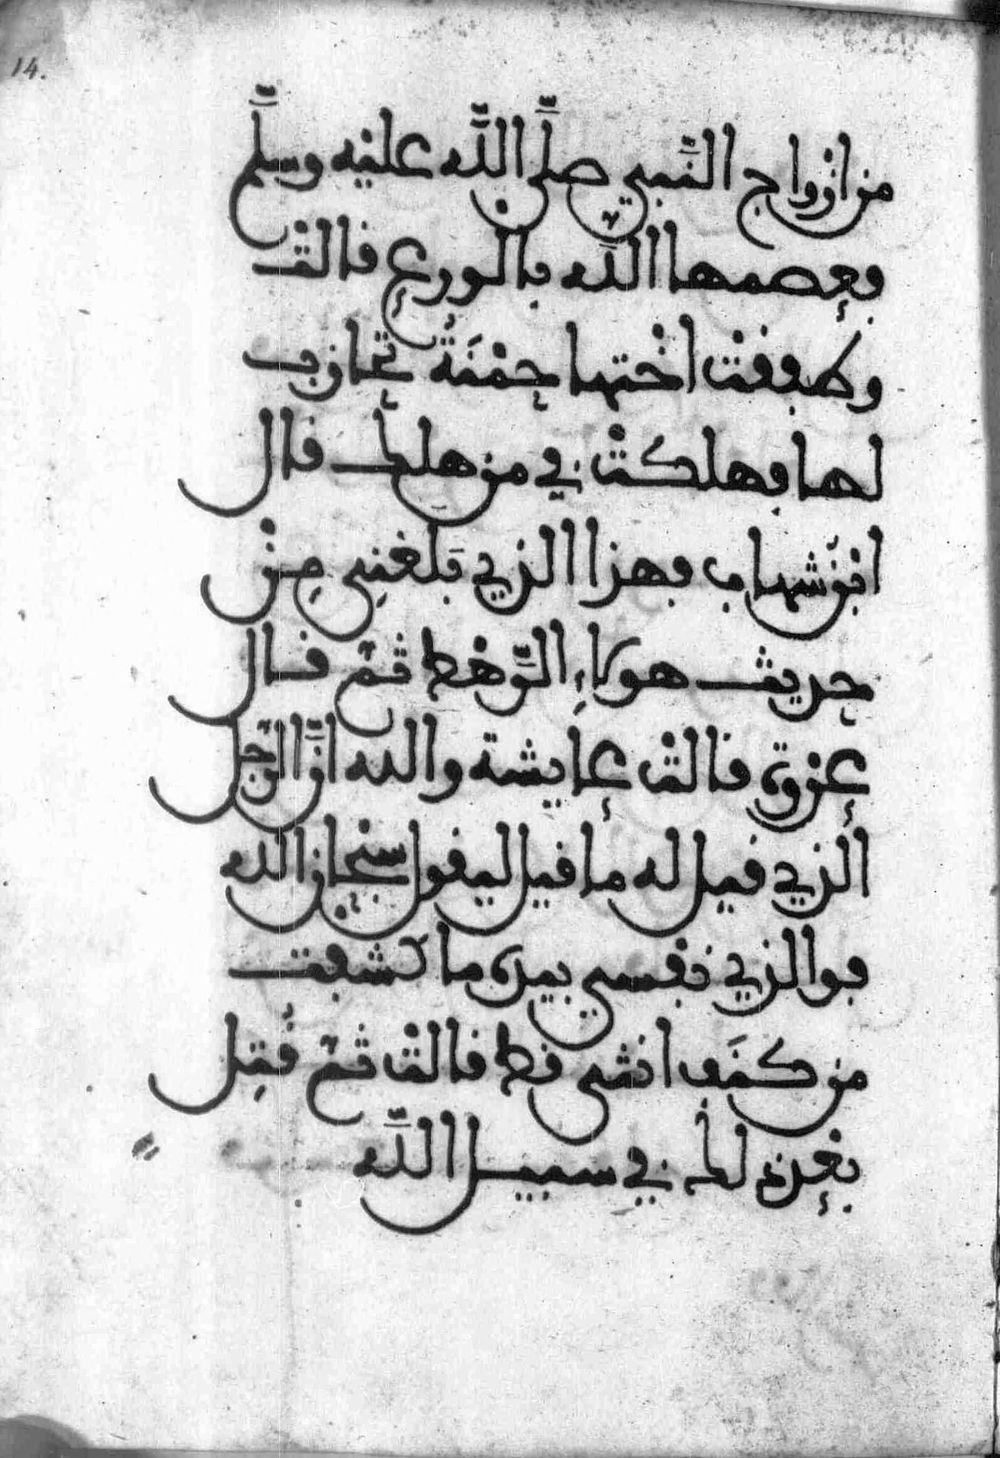 14.
من ازواج النَّبي صلَّى اللَّه عليْه وسلَّم
فعصمها اللَّه بالورع قالتْ
وطفقتْ اخْتها حمْنَةُ تحارب
لها فهلكتْ في من هلك قال
ابنُ شهاب فهذا الذي بَلغنِي مِنْ
حديث هولاءِ الرَّهْط ثمّ قال
عرْوة قالتْ عايشة والله انَّ الرّجل
الذي قيل له ما قيل ليقول سبْحان الله
فوالذي نفْسي بيده ما كشفت
من كنَف انثى قط قالتْ ثمّ قُتِل
بعْد ذلك في سبيل اللَّه